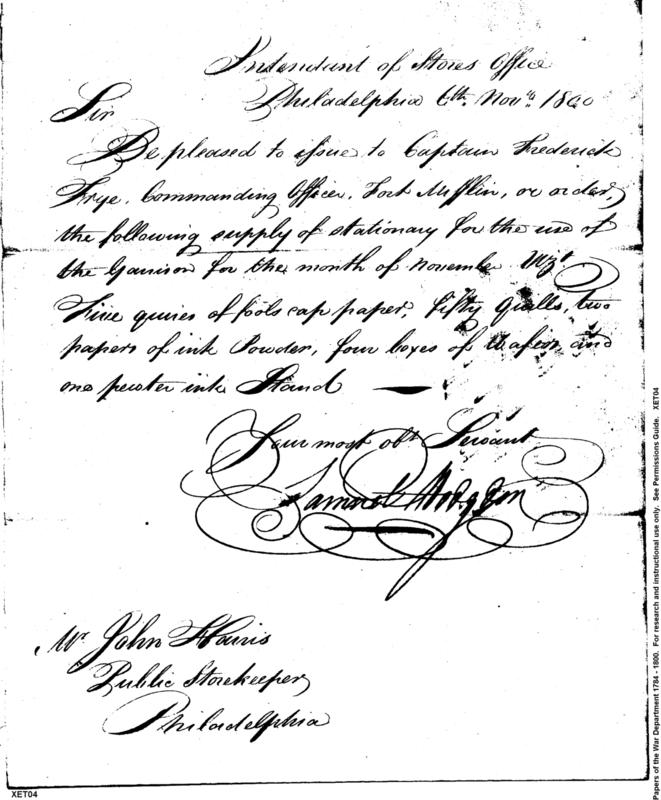 Intendant of Stores Office
Philadelphia 6th. Novr. 1800
Sir
Be pleased to issue to Captain Frederick
Frye, Commanding Officer, Fort Mifflin, or order,
the following supply of stationary for the use of
the Garrison for the month of November Vizt
Five quires of fools cap paper, fifty Quills, two
papers of ink Powder, four boxes of Wafers, and
one pewter ink Stand
Your most obt Servant
Samuel Hodgdon
Mr John Harris
Public Storekeeper
Philadelphia
XET04
Papers of the War Department 1784 - 1800. For research and instructional use only. See Permissions Guide. XET04